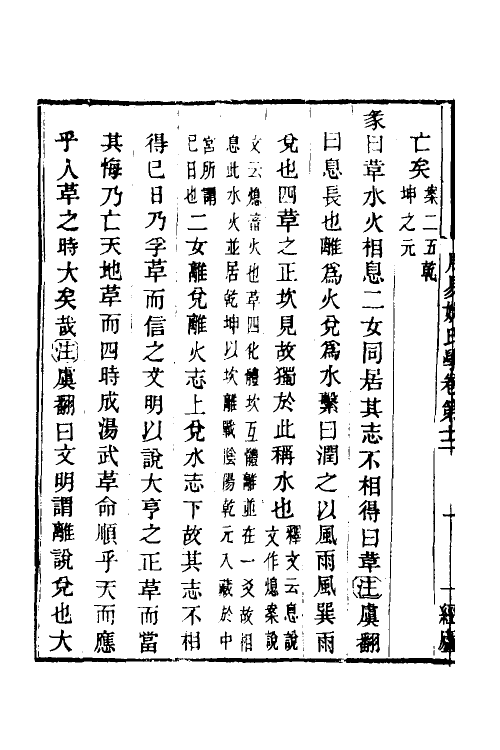 亡矣案二五乾坤之元
彖曰革水火相息二女同居其志不相得曰革注虞翻
曰息長也離爲火兌爲水繫曰潤之以風雨風巽雨
兌也四革之正坎見故獨於此稱水也釋文云息說文作熄案說
文云熄畜火也革四化體坎互體離並在一爻故相息此水火並居乾坤以坎離戰陰陽乾元入藏於中
宮所謂巳日也二女離兌離火志上兌水志下故其志不相
得巳日乃孚革而信之文明以說大亨之正革而當
其悔乃亡天地革而四時成湯武革命順乎天而應
乎人革之時大矣哉注虞翻曰文明謂離說兌也大
周易姚氏學卷第十二
十
一經廬